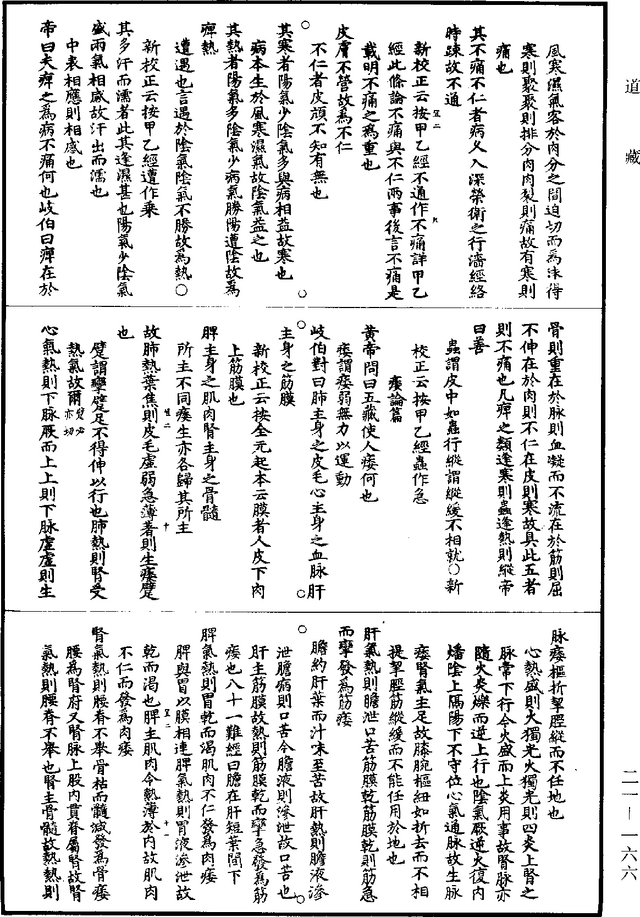 道藏
風寒濕氣客於肉分之間迫切而為沫得
寒則聚聚則排分肉肉裂則痛故有寒則
痛也
其不痛不仁者病久入深榮衛之行濇經絡
時踈故不通
新校正云按甲乙經不通作不痛詳甲乙
經此條論不痛與不仁兩事後言不痛是
載明不痛之為重也
皮膚不營故為不仁
不仁者皮頑不知有無也
其寒者陽氣少陰氣多與病相益故寒也
病本生於風寒濕氣故陰氣益之也
其熱者陽氣多陰氣少病氣勝陽遭陰故為
痺熱
遭遇也言遇於陰氣陰氣不勝故為熱○
新校正云按甲乙經遭作乘
其多汗而濡者此其逢濕甚也陽氣少陰氣
盛兩氣相感故汗出而濡也
中表相應則相感也
帝曰夫痺之為病不痛何也岐伯曰痺在於
骨則重在於脉則血凝而不流在於筋則屈
不伸在於肉則不仁在皮則寒故具此五者
則不痛也凡痺之類逢寒則蟲逢熱則縱帝
曰善
蟲謂皮中如蟲行縱謂縱緩不相就○新
校正云按甲乙經蟲作急
痿論篇
黃帝問曰五藏使人痿何也
痿謂痿弱無力以運動
岐伯對曰肺主身之皮毛心主身之血脉肝
主身之筋膜
新校正云按全元起本云膜者人皮下肉
上筋膜也
脾主身之肌肉腎主身之骨髓
所主不同痿生亦各歸其所主
故肺熱葉焦則皮毛虛弱急薄著則生痿躄
也
躄謂攣躄足不得伸以行也肺熱則腎受
熱氣故爾
心氣熱則下脉厥而上上則下脉虛虛則生
脉痿樞折挈脛縱而不任地也
心熱盛則火獨光火獨光則四炎上腎之
脉常下行今火盛而上炎用事故腎脉亦
隨火炎爍而逆上行也陰氣厥逆火復內
燔陰上隔陽下不守位心氣通脉故生脉
痿腎氣主足故膝腕樞紐如折去而不相
提挈脛筋縱緩而不能任用於地也
肝氣熱則膽泄口苦筋膜乾筋膜乾則筋急
而攣發為筋痿
膽約肝葉而汁味至苦故肝熱則膽液滲
泄膽病則口苦今膽液則滲泄故口苦也
肝主筋膜故熱則筋膜乾而攣急發為筋
痿也八十一難經曰膽在肝短葉間下
脾氣熱則胃乾而渴肌肉不仁發為肉痿
脾與胃以膜相連脾氣熱則胃液滲泄故
乾而渴也脾主肌肉今熱薄於內故肌肉
不仁而發為肉痿
腎氣熱則腰脊不舉骨枯而髓減發為骨痿
腰為腎府又腎脉上股內貫脊屬腎故腎
氣熱則腰脊不舉也腎主骨髓故熱熱則
二一—一六六